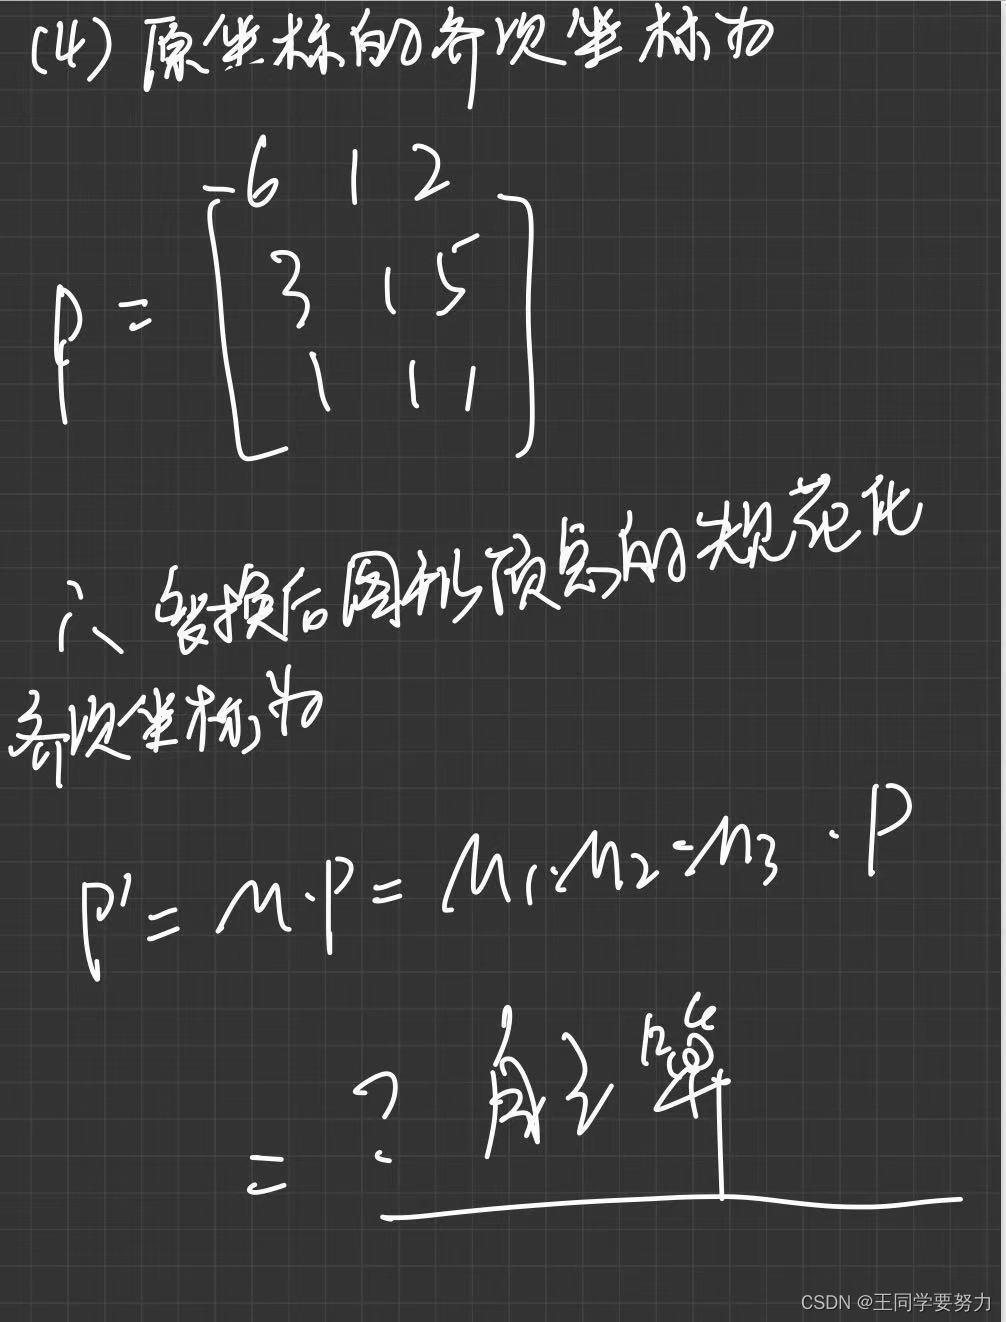 (4) 原坐标的齐次坐标为
-6 1 2
P = 3 1 5
1 1 1
∴ 变换后图形顶点的规范化
齐次坐标为
P' = M·P = M1·M2·M3·P
= ? 自己算
CSDN @王同学要努力